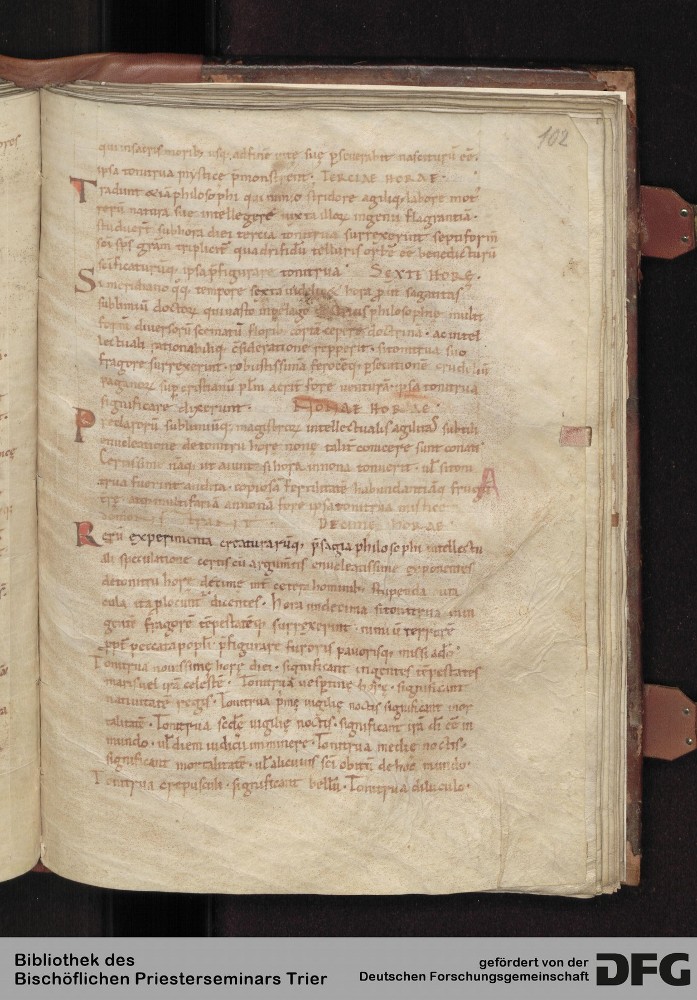 102
qui in sacris morib; usq; ad finē uitę suę pseuerabit nasciturū eē.
ipsa tonitrua mystice pmonstrent. TERCIAE HORAE.
Tradunt & iā philosophi qui nimio stridore agiliq; labore mot
rerū natura suę intellegere iuxta illoꝝ ingenii flagrantia.
studuert sub hora diei tercia tonitrua surrexerint septiform
sci sps gram triplicit quadrifidū telluris orbē eē benedicturū
scificaturūq; ipsa pfigurare tonitrua. SEXTE HORE.
Si meridiano qq; tempore sexta uidelic& hora put sagacitas
sublimiū doctoꝝ qui uasto in pelago philosophię multi
formi diuersorū scematū florib; corā cepere doctrina. ac intel
lectuali rationabiliq; csideratione repperit. si tonitrua suo
fragore surrexerint. robustissima ferocēq; psecutionē crudeliū
paganoꝝ sup cristianū plm acrit fore uenturā ipsa tonitrua
significare dixerunt. NONAE HORAE.
Preclarorū sublimiūq; magistroꝝ intellectualis agilitas subtili
enucleatione de tonitru hore none talit conicere sunt conati
Certissime naq; ut aiunt si hora in nona tonuerit. ul si toni
trua fuerint audita. copiosā fertilitatē habundantiāq; frugū
A
fore ipsa tonitrua mistice
DECIME HORAE
Rerū experimenta creaturarūq; psagia philosophi intellectu
ali speculatione certis cū argumtis enucleatissime exponentes
de tonitru horę decime int cetera hominib; stupenda mira
cula ita plocunt dicentes. Hora undecima si tonitrua cum
gente fragorē tēpestatēq; surrexerint. nimiū terrorē
ppt peccata popli pfigurare furoris pauorisq; missi a dō.
Tonitrua nouissimę horę diei. significant ingentes tēpestates
maris uel irā celestē. Tonitrua uespertine horę. significant
natiuitatē regis. Tonitrua pmę uigilię noctis significant mor
talitatē. Tonitrua scdę uigilię noctis. significant irā di eē in
mundo. ul diem iudicii imminere. Tonitrua medię noctis.
significant mortalitatē. ul alicuius sci obitū de hoc mundo.
Tonitrua crepusculi. significant bellū. Tonitrua diluculo.
Bibliothek des
Bischöflichen Priesterseminars Trier
gefördert von der
Deutschen Forschungsgemeinschaft DFG